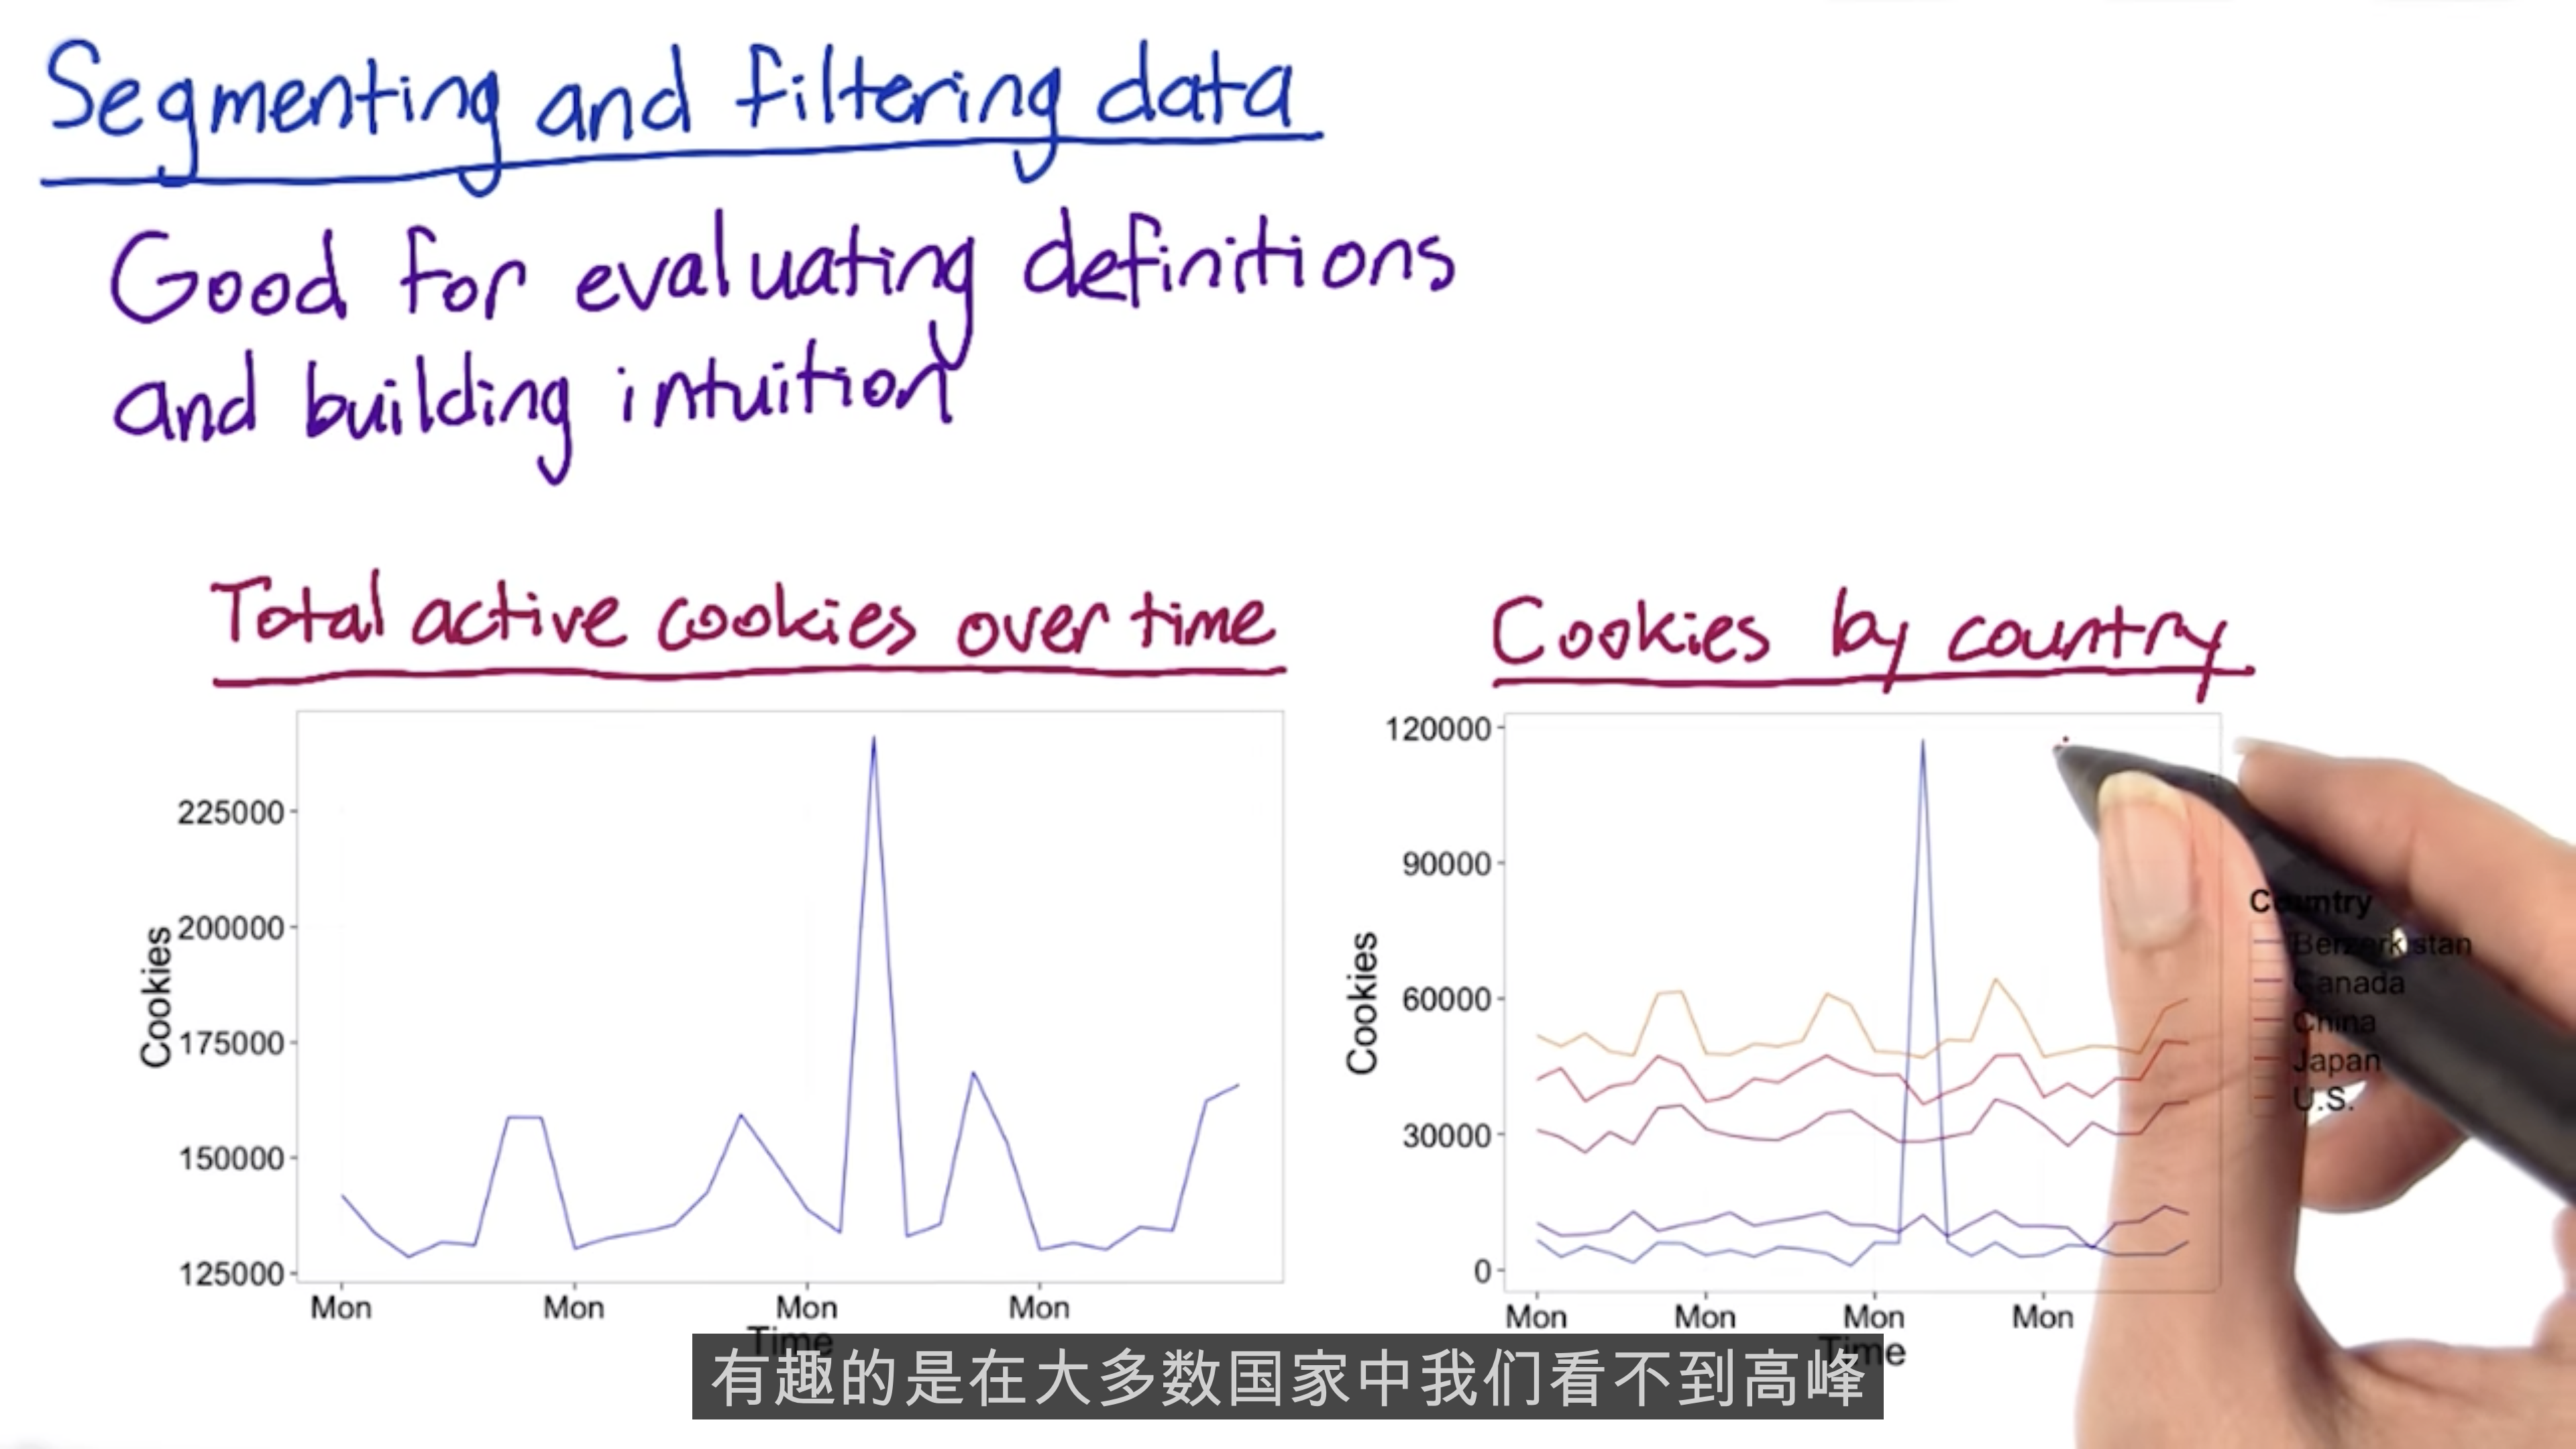 Segmenting and filtering data
Good for evaluating definitions
and building intuition
Total active cookies over time
Cookies by country
225000
200000
175000
150000
125000
Cookies
Mon Mon Mon Mon
Time
120000
90000
60000
30000
0
Cookies
Mon Mon Mon Mon
Time
Country
Berzerkistan
Canada
China
Japan
U.S.
有趣的是在大多数国家中我们看不到高峰